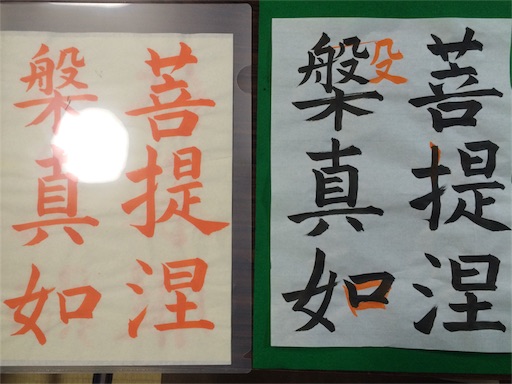 菩提涅
槃真如
菩提涅
殳
槃真如